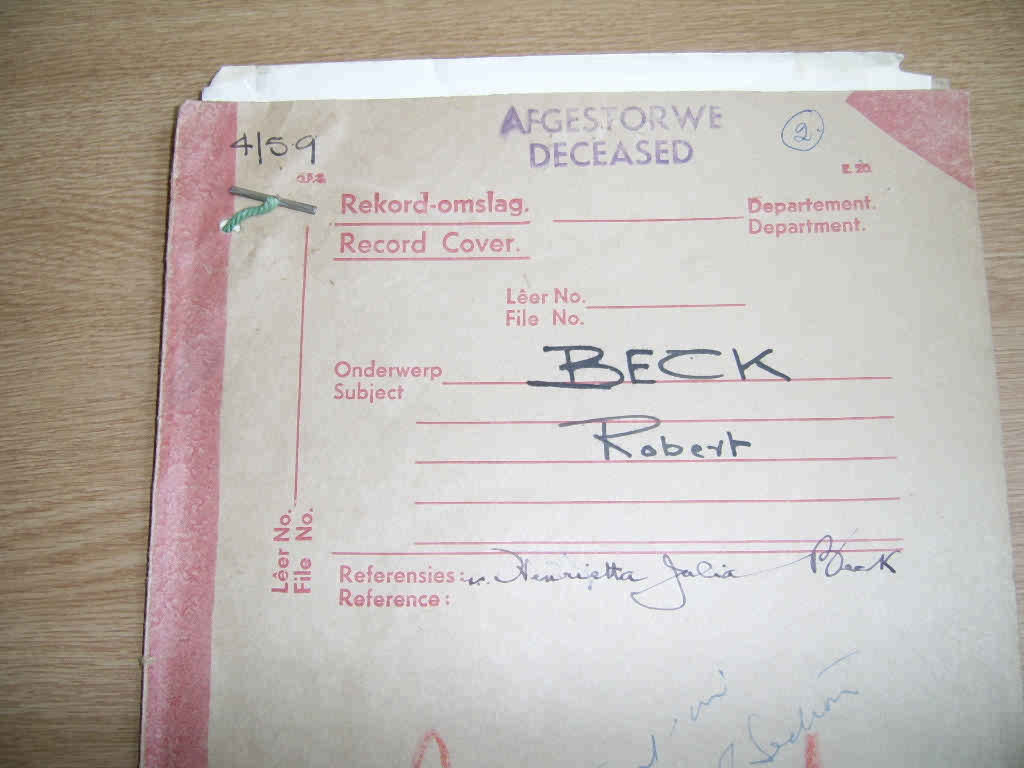 AFGESTORWE
DECEASED
2.
4/59
E 20.
Rekord-omslag.
Record Cover.
Departement.
Department.
Lêer No.
File No.
Onderwerp
Subject
BECK
Robert
Lêer No.
File No.
Referensies: Henrietta Julia Beck
Reference:
Section